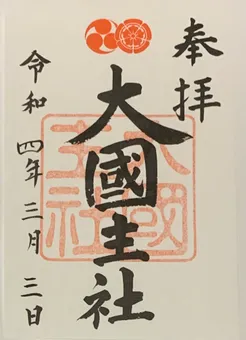 奉拝
大國主社
令和四年三月三日
大國
主社